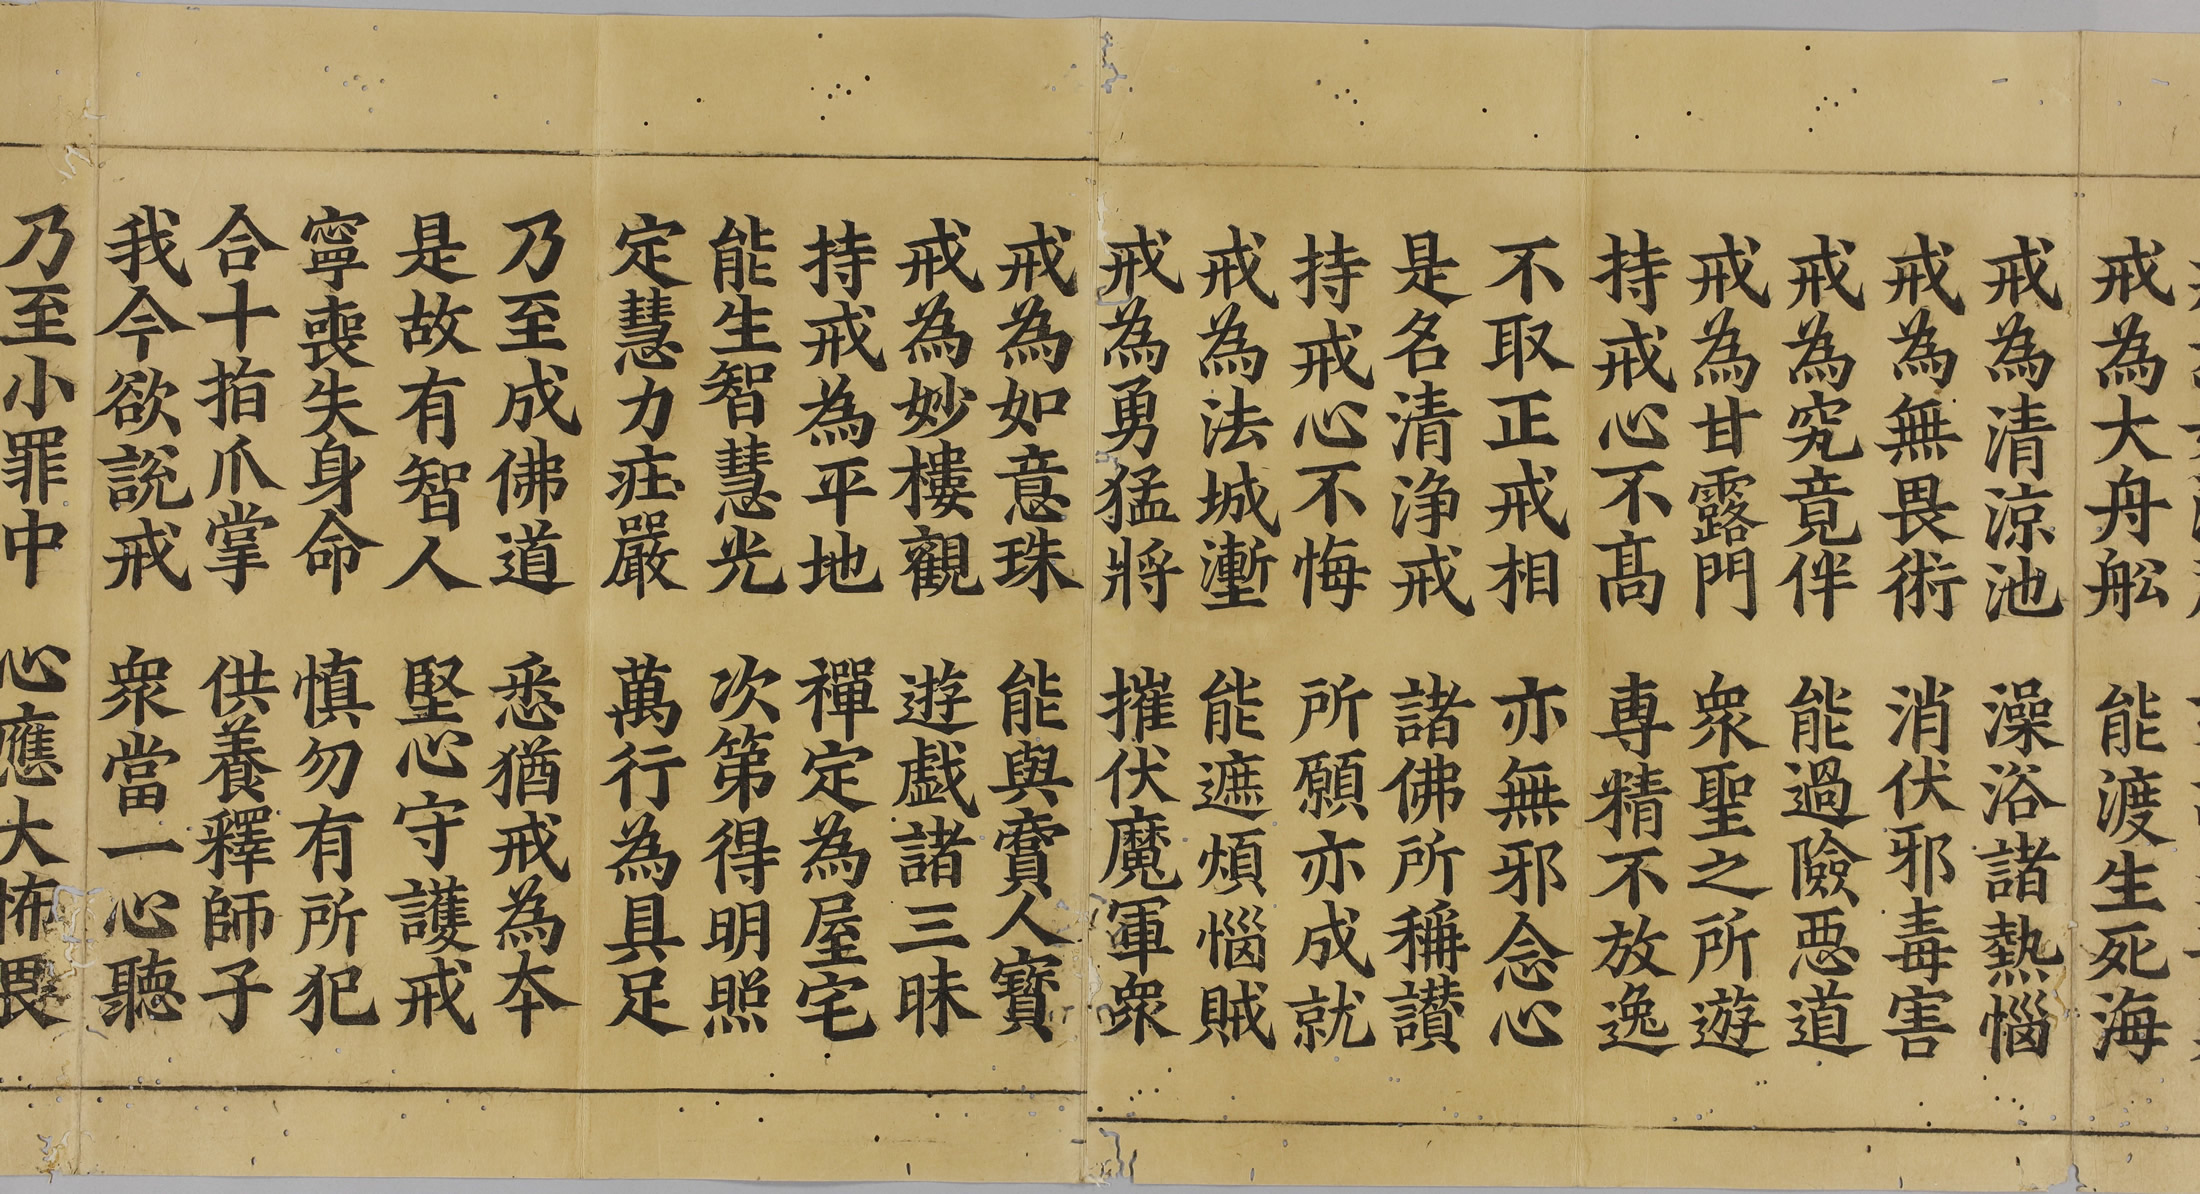 戒為大舟舩　能渡生死海
戒為清涼池　澡浴諸熱惱
戒為無畏術　消伏邪毒害
戒為究竟伴　能過險悪道
戒為甘露門　衆聖之所遊
持戒心不髙　専精不放逸
不取正戒相　亦無邪念心
是名清浄戒　諸佛所稱讃
持戒心不悔　所願亦成就
戒為法城壍　能遮煩惱賊
戒為勇猛將　摧伏魔軍衆
戒為如意珠　能與賷人寳
戒為妙樓觀　遊戯諸三昧
持戒為平地　禪定為屋宅
能生智慧光　次第得明照
定慧力莊嚴　萬行為具足
乃至成佛道　悉猶戒為本
是故有智人　堅心守護戒
寧喪失身命　慎勿有所犯
合十指爪掌　供養釋師子
我今欲説戒　衆當一心聽
乃至小罪中　心應大怖畏